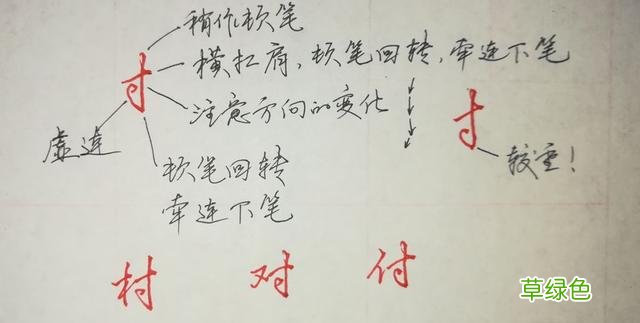 稍作顿笔
横扛肩，顿笔回转，牵连下笔
寸
注意方向的变化
寸
虚连
较重！
顿笔回转
牵连下笔
村 对 付
草绿色